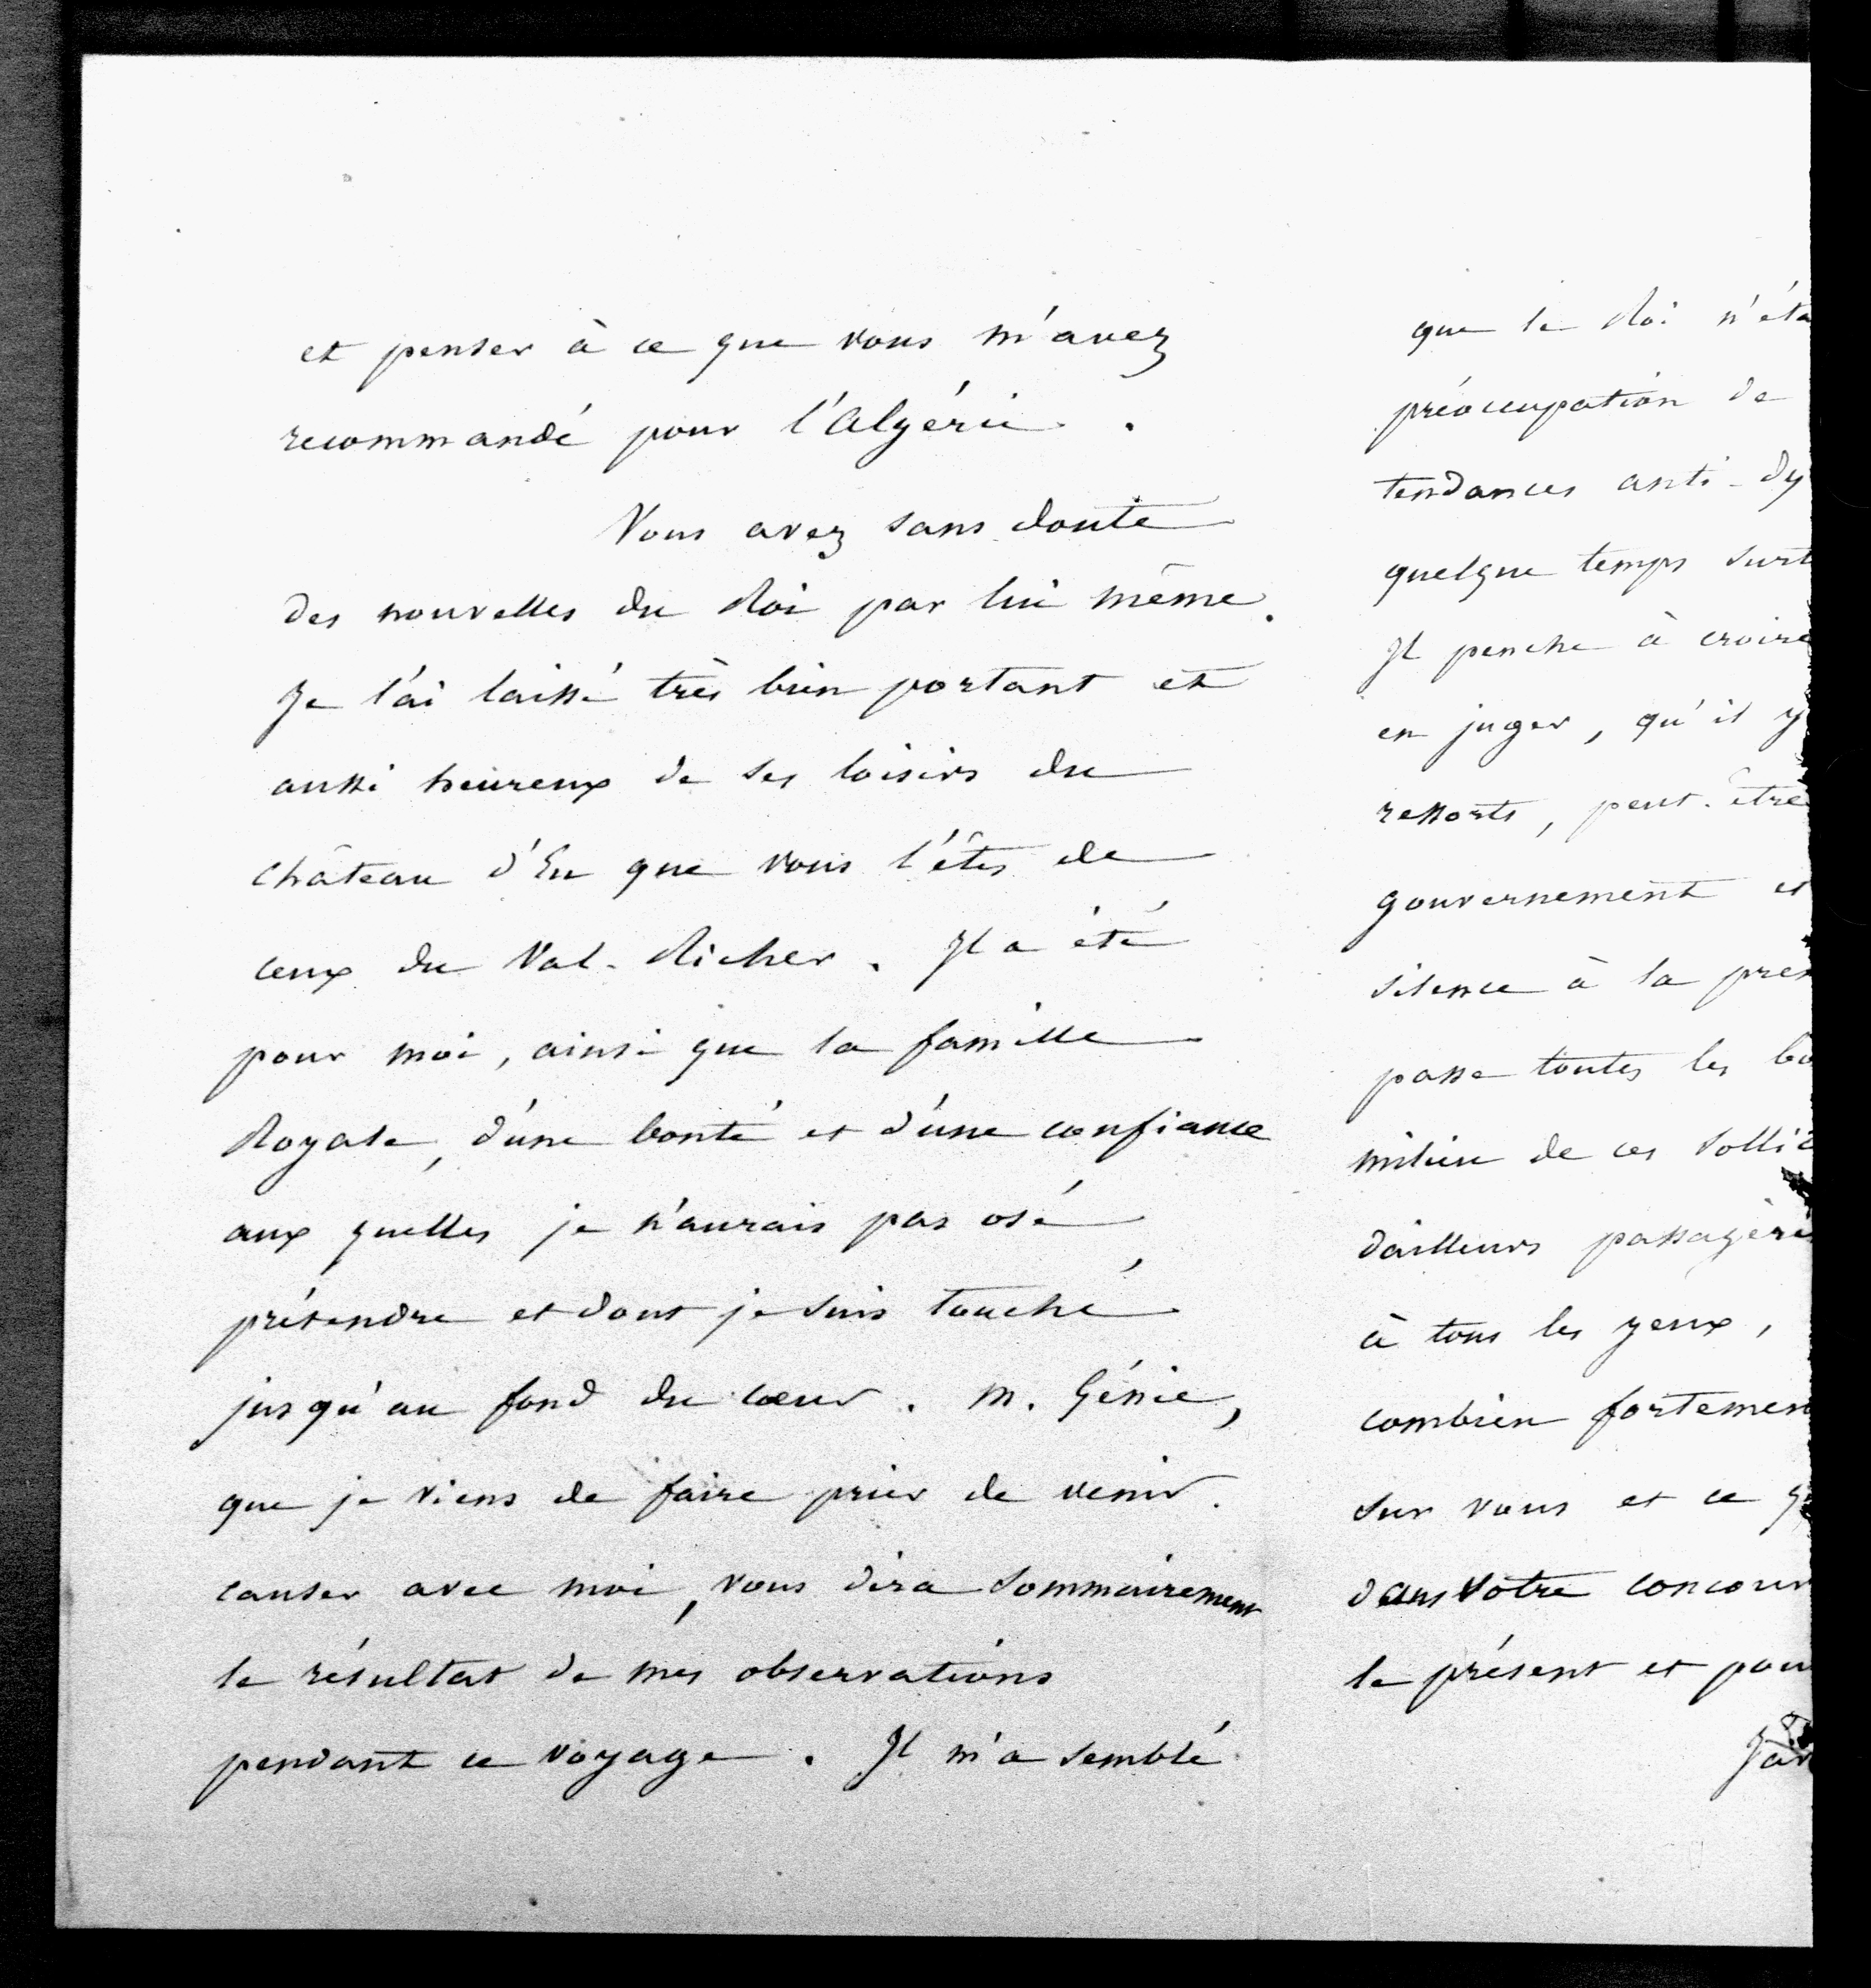 et penser à ce que vous m'avez
recommandé pour l'Algérie.
Vous avez sans doute
des nouvelles du Roi par lui même.
Je l'ai laissé très bien portant et
aussi heureux de ses loisirs du
château d'Eu que vous l'êtes de
ceux du Val-Richer. Il a été
pour moi, ainsi que la famille
Royale, d'une bonté et d'une confiance
aux quelles je n'aurais pas osé
prétendre et dont je suis touché
jusqu'au fond du cœur. M. Génie,
que je viens de faire prier de venir
causer avec moi, vous dira sommairement
le résultat de mes observations
pendant ce voyage. Il m'a semblé
que le Roi n'éta
préoccupation de
tendances anti-dy
quelque temps surt
Il penche à croire
en juger, qu'il y
ressorts, peut-être
gouvernement et
silence à la pres
passe toutes les bo
milieu de ces solli
d'ailleurs passagère
à tous les yeux,
combien fortemen
sur vous et ce q
dans votre concour
le présent et pour